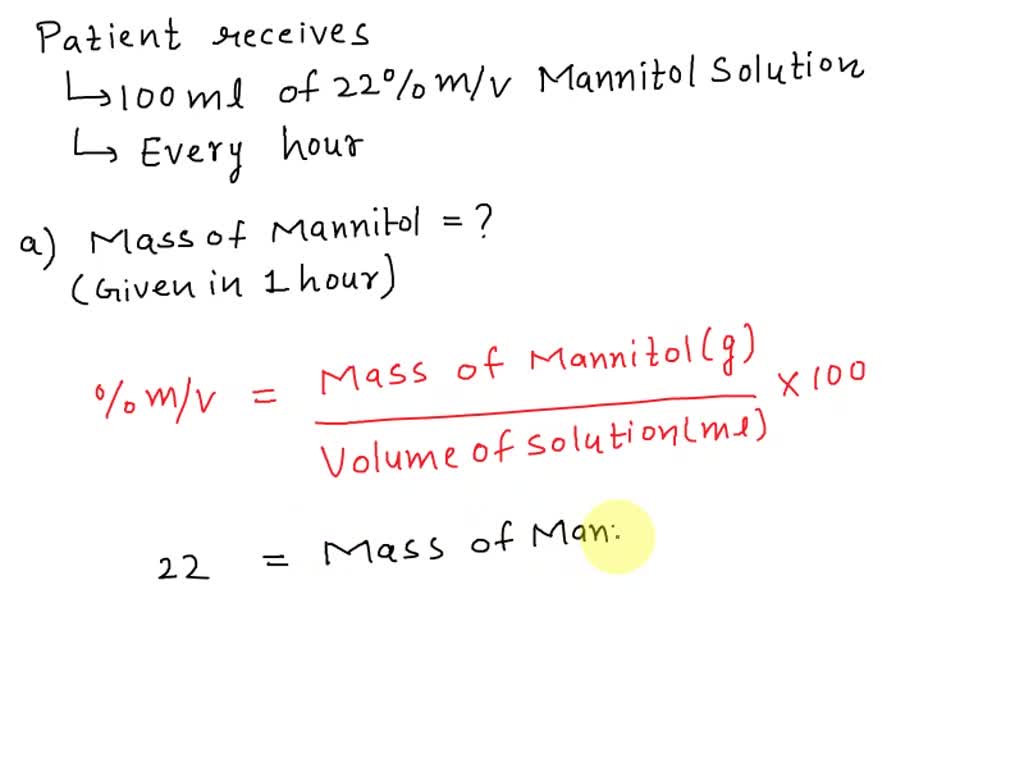 Patient receives
↳ 100 ml of 22% m/v Mannitol Solution
↳ Every hour
a) Mass of Mannitol = ?
(Given in 1 hour)
% m/v = Mass of Mannitol (g) / Volume of solution (ml) × 100
22 = Mass of Man: